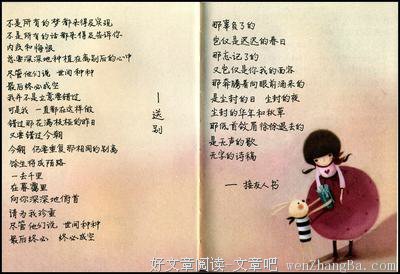 不是所有的梦都来得及实现
不是所有的话都来得及告诉你
内疚和悔恨
总要深深地种植在离别后的心中
尽管他们说 世间种种
最后终必成空
我并不是立意要错过
可是我 一直都在这样做
错过那花满枝桠的昨日
又要错过今朝
今朝 仍要重复那相同的别离
余生将成陌路
一去千里
在暮霭里
向你深深地俯首
请为我珍重
尽管他们说 世间种种
最后终必 终必成空
—送别
那辜负了的
也仅是迟迟的春日
那忘记了的
又也仅是你我的面容
那奔腾着向眼前涌来的
是尘封的日 尘封的夜
尘封的华年和秋草
那低首敛眉徐徐退去的
是无声的歌
无字的诗稿
—接友人书
好文章阅读-文章吧-wenZhangBa.com